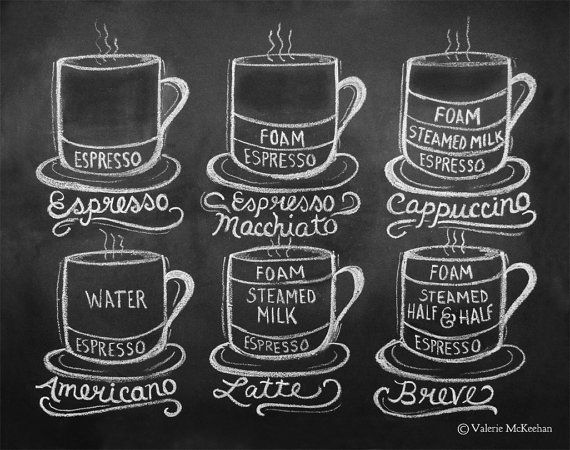 ESPRESSO
Espresso
FOAM
ESPRESSO
Espresso
Macchiato
FOAM
STEAMED MILK
ESPRESSO
Cappuccino
WATER
ESPRESSO
Americano
FOAM
STEAMED
MILK
ESPRESSO
Latte
FOAM
STEAMED
HALF & HALF
ESPRESSO
Breve
© Valerie McKeehan